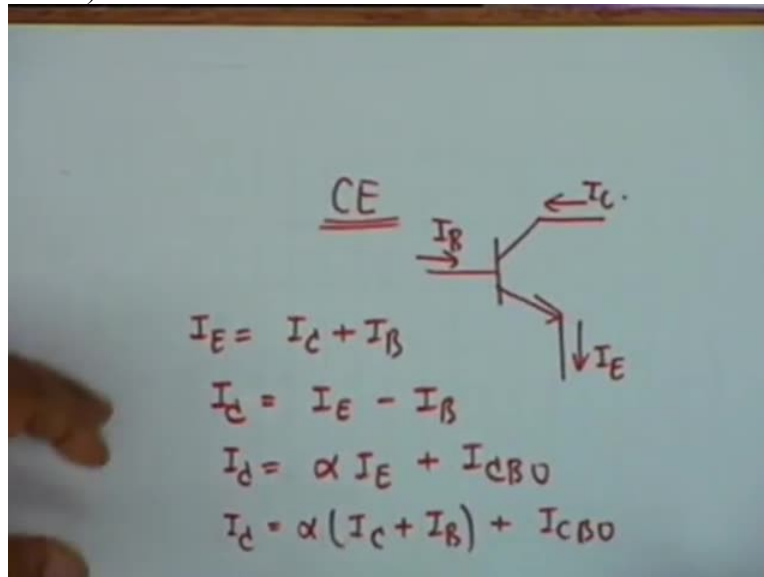 CE
I_C.
I_B
I_E
I_E = I_C + I_B
I_C = I_E - I_B
I_C = α I_E + I_CBO
I_C = α (I_C + I_B) + I_CBO